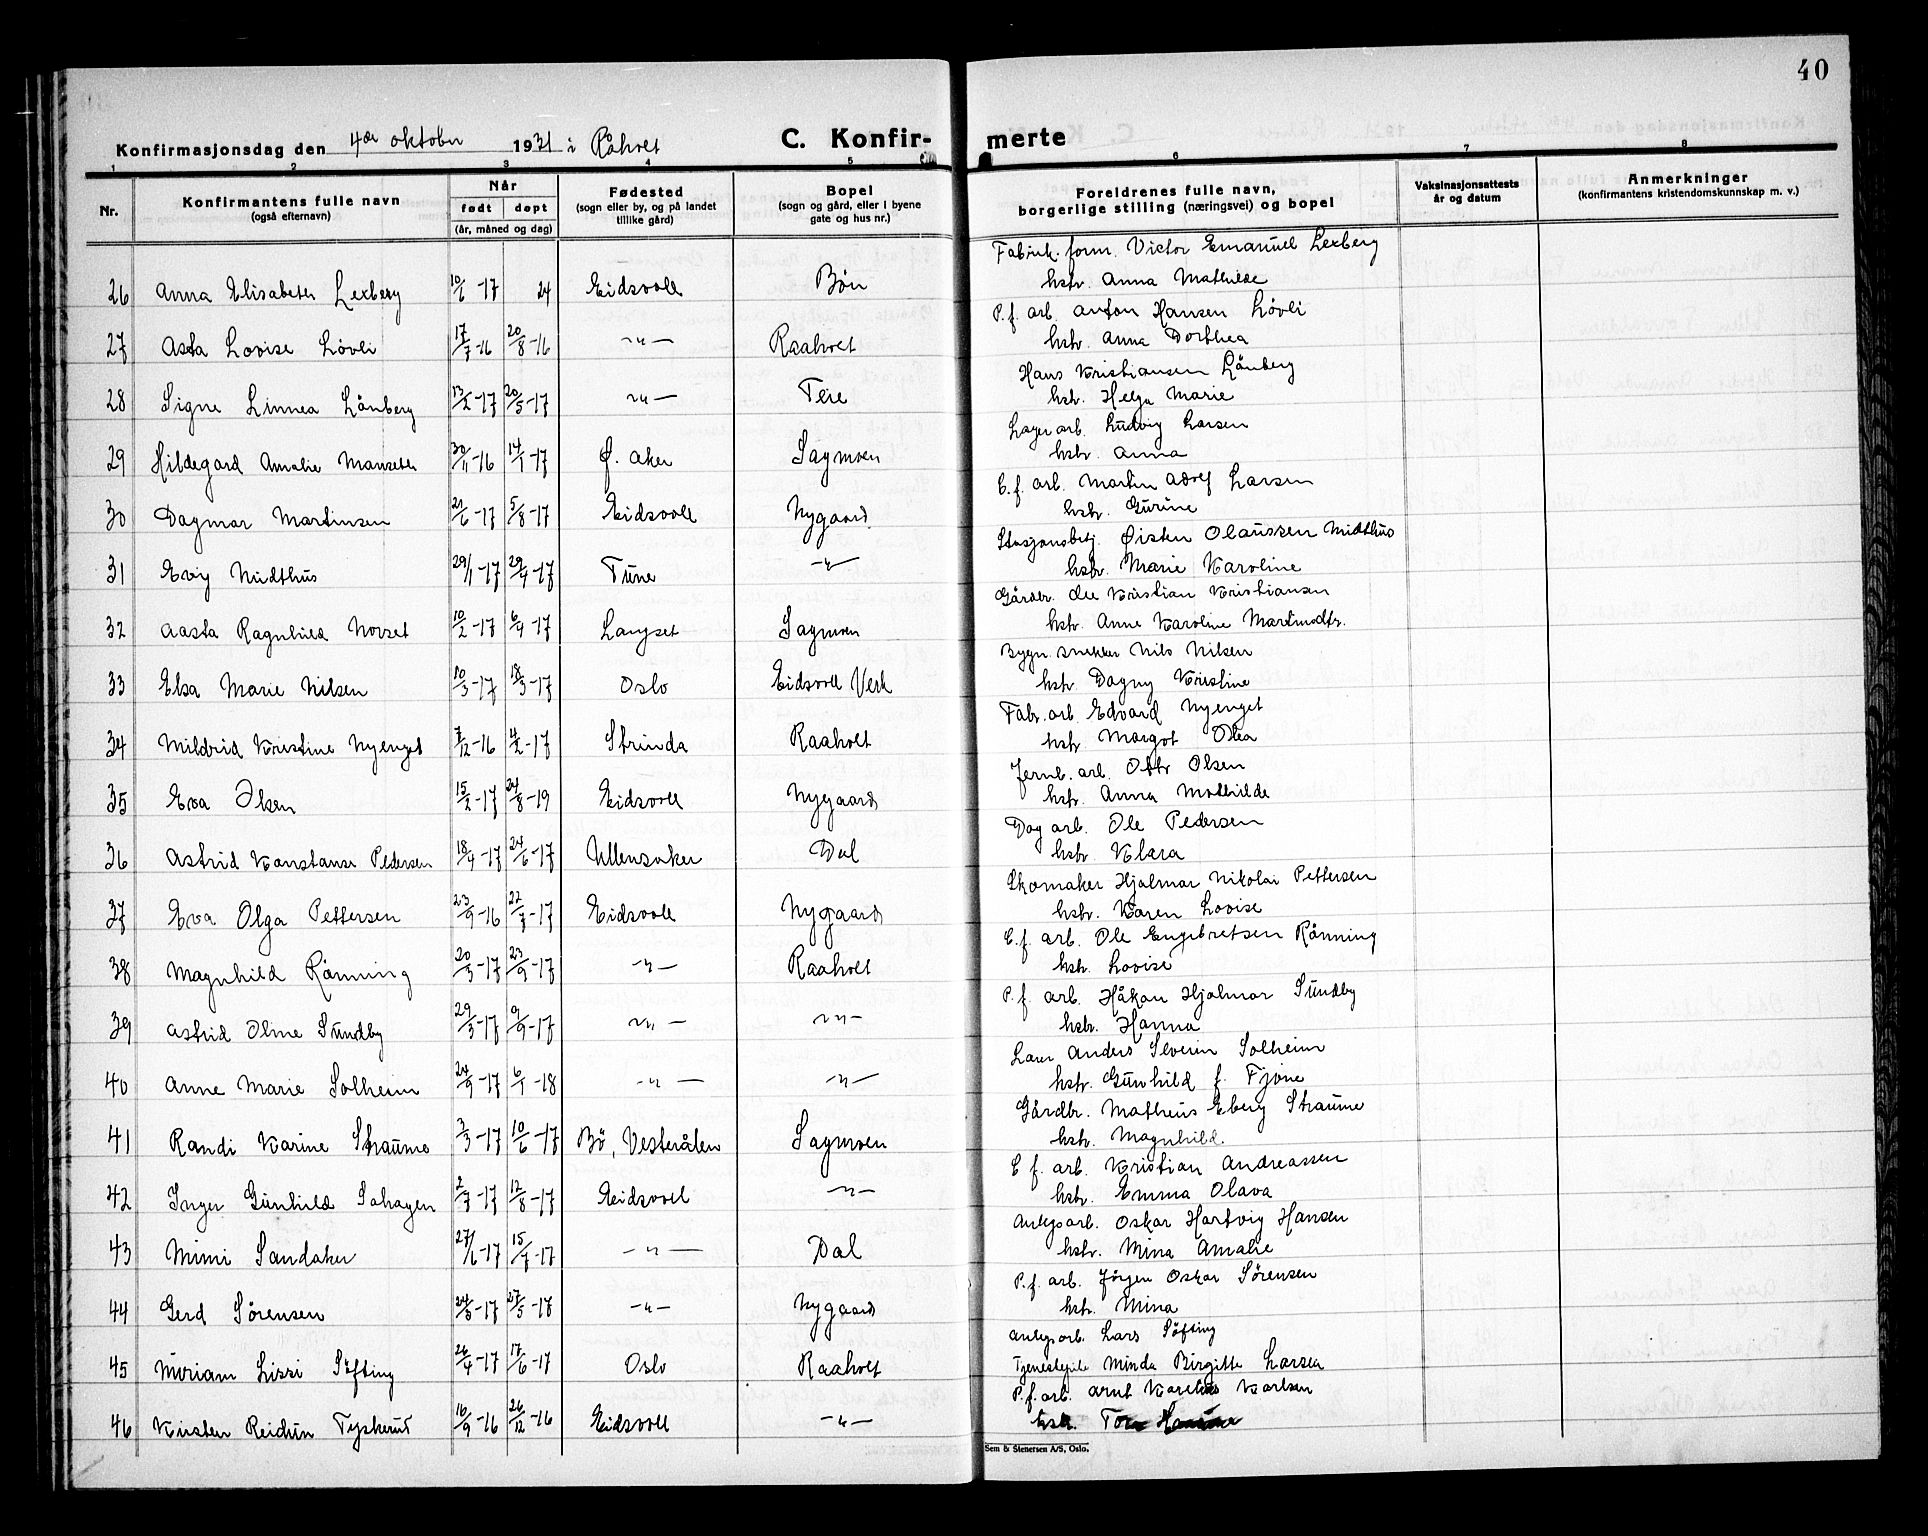 40
Konfirmasjonsdag den 4de oktober 1931 i Råholt
C. Konfir-
merte
1 2 3 4 5 6 7 8
Nr.
Konfirmantens fulle navn
(også efternavn)
Når
født døpt
(år, måned og dag)
Fødested
(sogn eller by, og på landet
tillike gård)
Bopel
(sogn og gård, eller i byene
gate og hus nr.)
Foreldrenes fulle navn,
borgerlige stilling (næringsvei) og bopel
Vaksinasjonsattests
år og datum
Anmerkninger
(konfirmantens kristendomskunnskap m. v.)
Fabrik. form. Victor Emanuel Lexberg
26 Anna Elisabeth Lexberg 10/6-17 24 Eidsvoll Bøn hstr. Anna Mathilde
P.f. arb. Anton Hansen Løvli
27 Asta Lovise Løvli 17/7-16 20/8-16 -"- Raaholt hstr. Anna Dorthea
Hans Kristiansen Lånberg
28 Signe Linnea Lånberg 13/2-17 20/5-17 -"- Teie hstr. Helga Marie
Lager arb. Ludvig Larsen
29 Hildegard Amalie Manseth 30/11-16 14/1-17 Ø. Aker Sagmoen hstr. Anna
E.f. arb. Martin Adolf Larsen
30 Dagmar Martinsen 21/6-17 5/8-17 Eidsvoll Nygaard hstr. Gurine
Stasjonsbetj. Øisten Olaussen Midthus
31 Evy Midthus 29/1-17 29/4-17 Tune -"- hstr. Marie Karoline
Gårdbr. Ole Kristian Kristiansen
32 Aasta Ragnhild Norset 10/2-17 6/4-17 Langset Sagmoen hstr. Anne Karoline Martinsdtr.
Bygn. snekker Nils Nilsen
33 Elsa Marie Nilsen 10/3-17 18/3-17 Oslo Eidsvoll Verk hstr. Dagny Kristine
Fabr. arb. Edvard Nyenget
34 Mildrid Kristine Nyenget 7/12-16 4/2-17 Strinda Raaholt hstr. Margot Olea
Jernb. arb. Otto Olsen
35 Eva Olsen 15/2-17 24/8-19 Eidsvoll Nygaard hstr. Anna Mathilde
Dag arb. Ole Pedersen
36 Astrid Konstanse Pedersen 18/4-17 24/6-17 Ullensaker Dal hstr. Klara
Skomaker Hjalmar Nikolai Pettersen
37 Eva Olga Pettersen 23/9-16 22/7-17 Eidsvoll Nygaard hstr. Karen Lovise
E.f. arb. Ole Engebretsen Rånning
38 Magnhild Rånning 20/3-17 23/9-17 -"- Raaholt hstr. Lovise
P.f. arb. Håkan Hjalmar Sundby
39 Astrid Oline Sundby 29/3-17 9/9-17 -"- -"- hstr. Hanna
Lærer Anders Severin Solheim
40 Anne Marie Solheim 24/9-17 6/1-18 -"- -"- hstr. Gunhild f. Tjöne
Gårdbr. Matheus Eberg Straume
41 Randi Karine Straume 3/3-17 10/6-17 Bø, Vesterålen Sagmoen hstr. Magnhild.
E f. arb. Kristian Andreassen
42 Inger Gunhild Sahagen 2/7-17 12/8-17 Eidsvoll -"- hstr. Emma Olava
Anlegsarb. Oskar Hartvig Hansen
43 Mimi Sandaker 27/6-17 15/7-17 -"- Dal hstr. Mina Amalie
P.f. arb. Jörgen Oskar Sörensen
44 Gerd Sörensen 24/3-17 27/5-17 -"- Nygaard hstr. Mina
Anlegsarb. Lars Söfting
45 Miriam Lissi Söfting 26/4-17 17/6-17 Oslo Raaholt Tjenestepike Minda Birgitte Larsen
P.f. arb. Arnt Karelius Karlsen
46 Kirsten Reidun Tyskerud 16/9-16 26/12-16 Eidsvoll -"- hstr.
Sem & Stenersen A/S, Oslo.